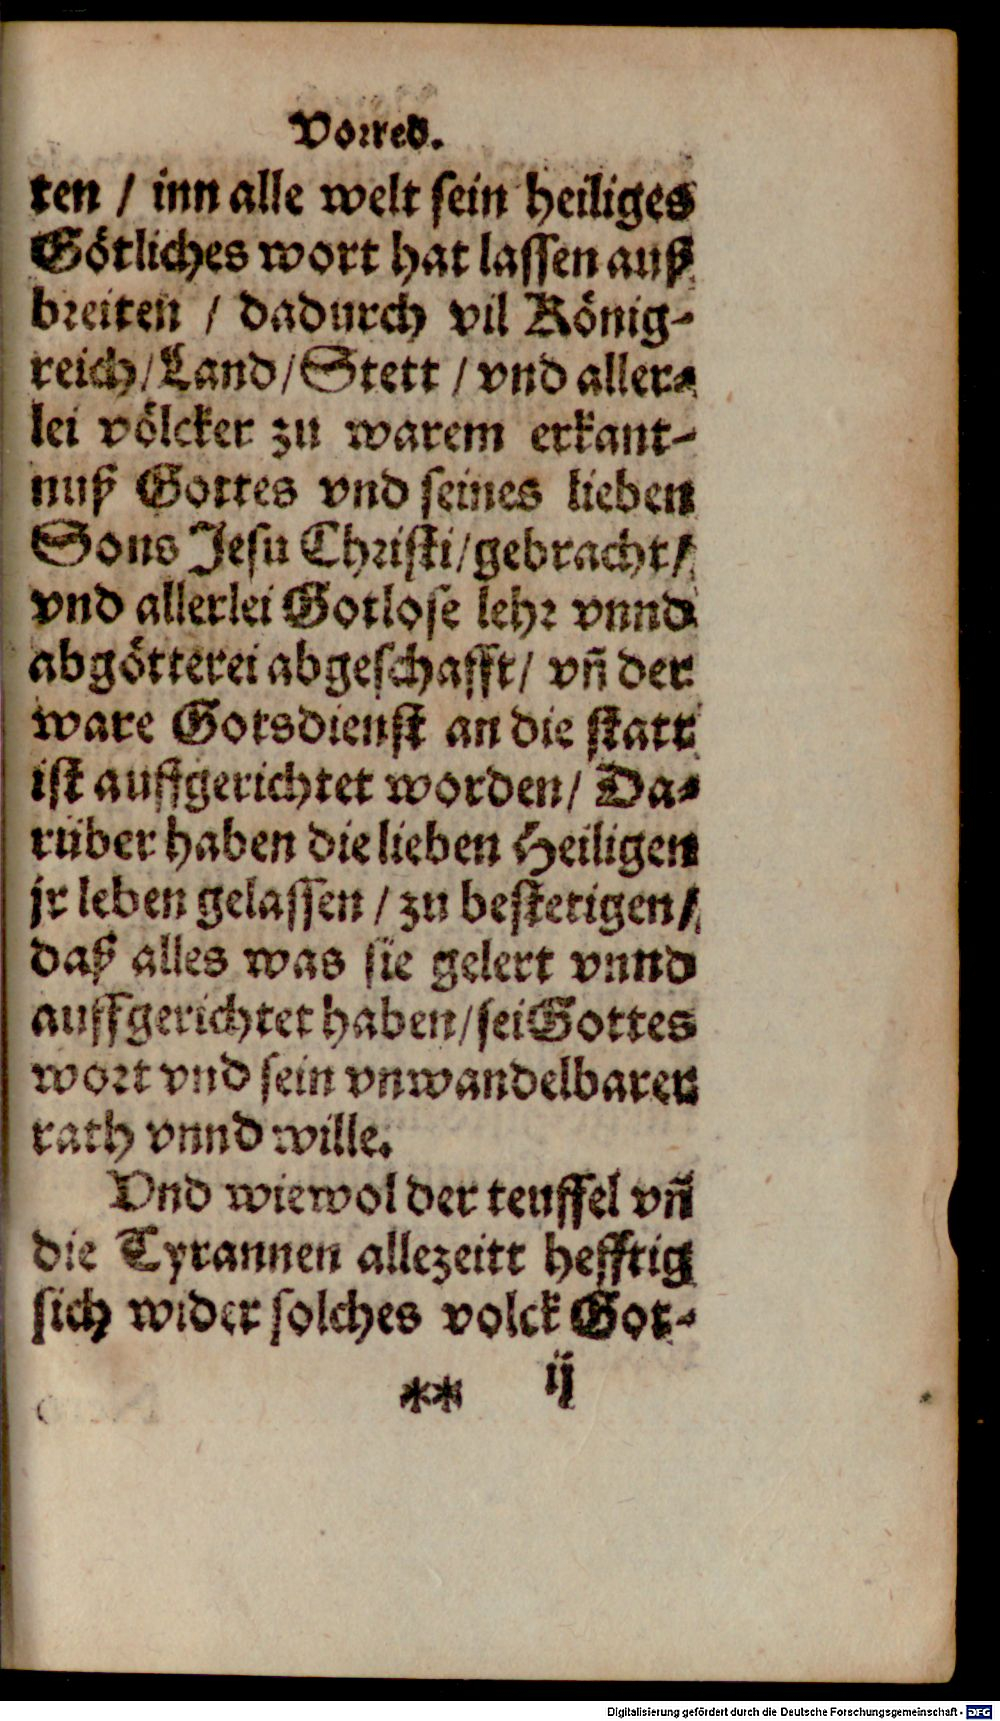 Vorred.
ten / inn alle welt sein heiliges
Götliches wort hat lassen auß
breiten / dadurch vil König-
reich/Land/Stett / vnd aller-
lei völcker zu warem erkant-
nuß Gottes vnd seines lieben
Sons Jesu Christi/gebracht/
vnd allerlei Gotlose lehr vnnd
abgötterei abgeschafft/ vñ der
ware Gotsdienst an die statt
ist auffgerichtet worden/ Da-
rüber haben die lieben Heiligen
jr leben gelassen / zu bestetigen/
daß alles was sie gelert vnnd
auffgerichtet haben/sei Gottes
wort vnd sein vnwandelbarer
rath vnnd wille.
Vnd wiewol der teuffel vñ
die Tyrannen allezeitt hefftig
sich wider solches volck Got-
** ij
Digitalisierung gefördert durch die Deutsche Forschungsgemeinschaft - DFG